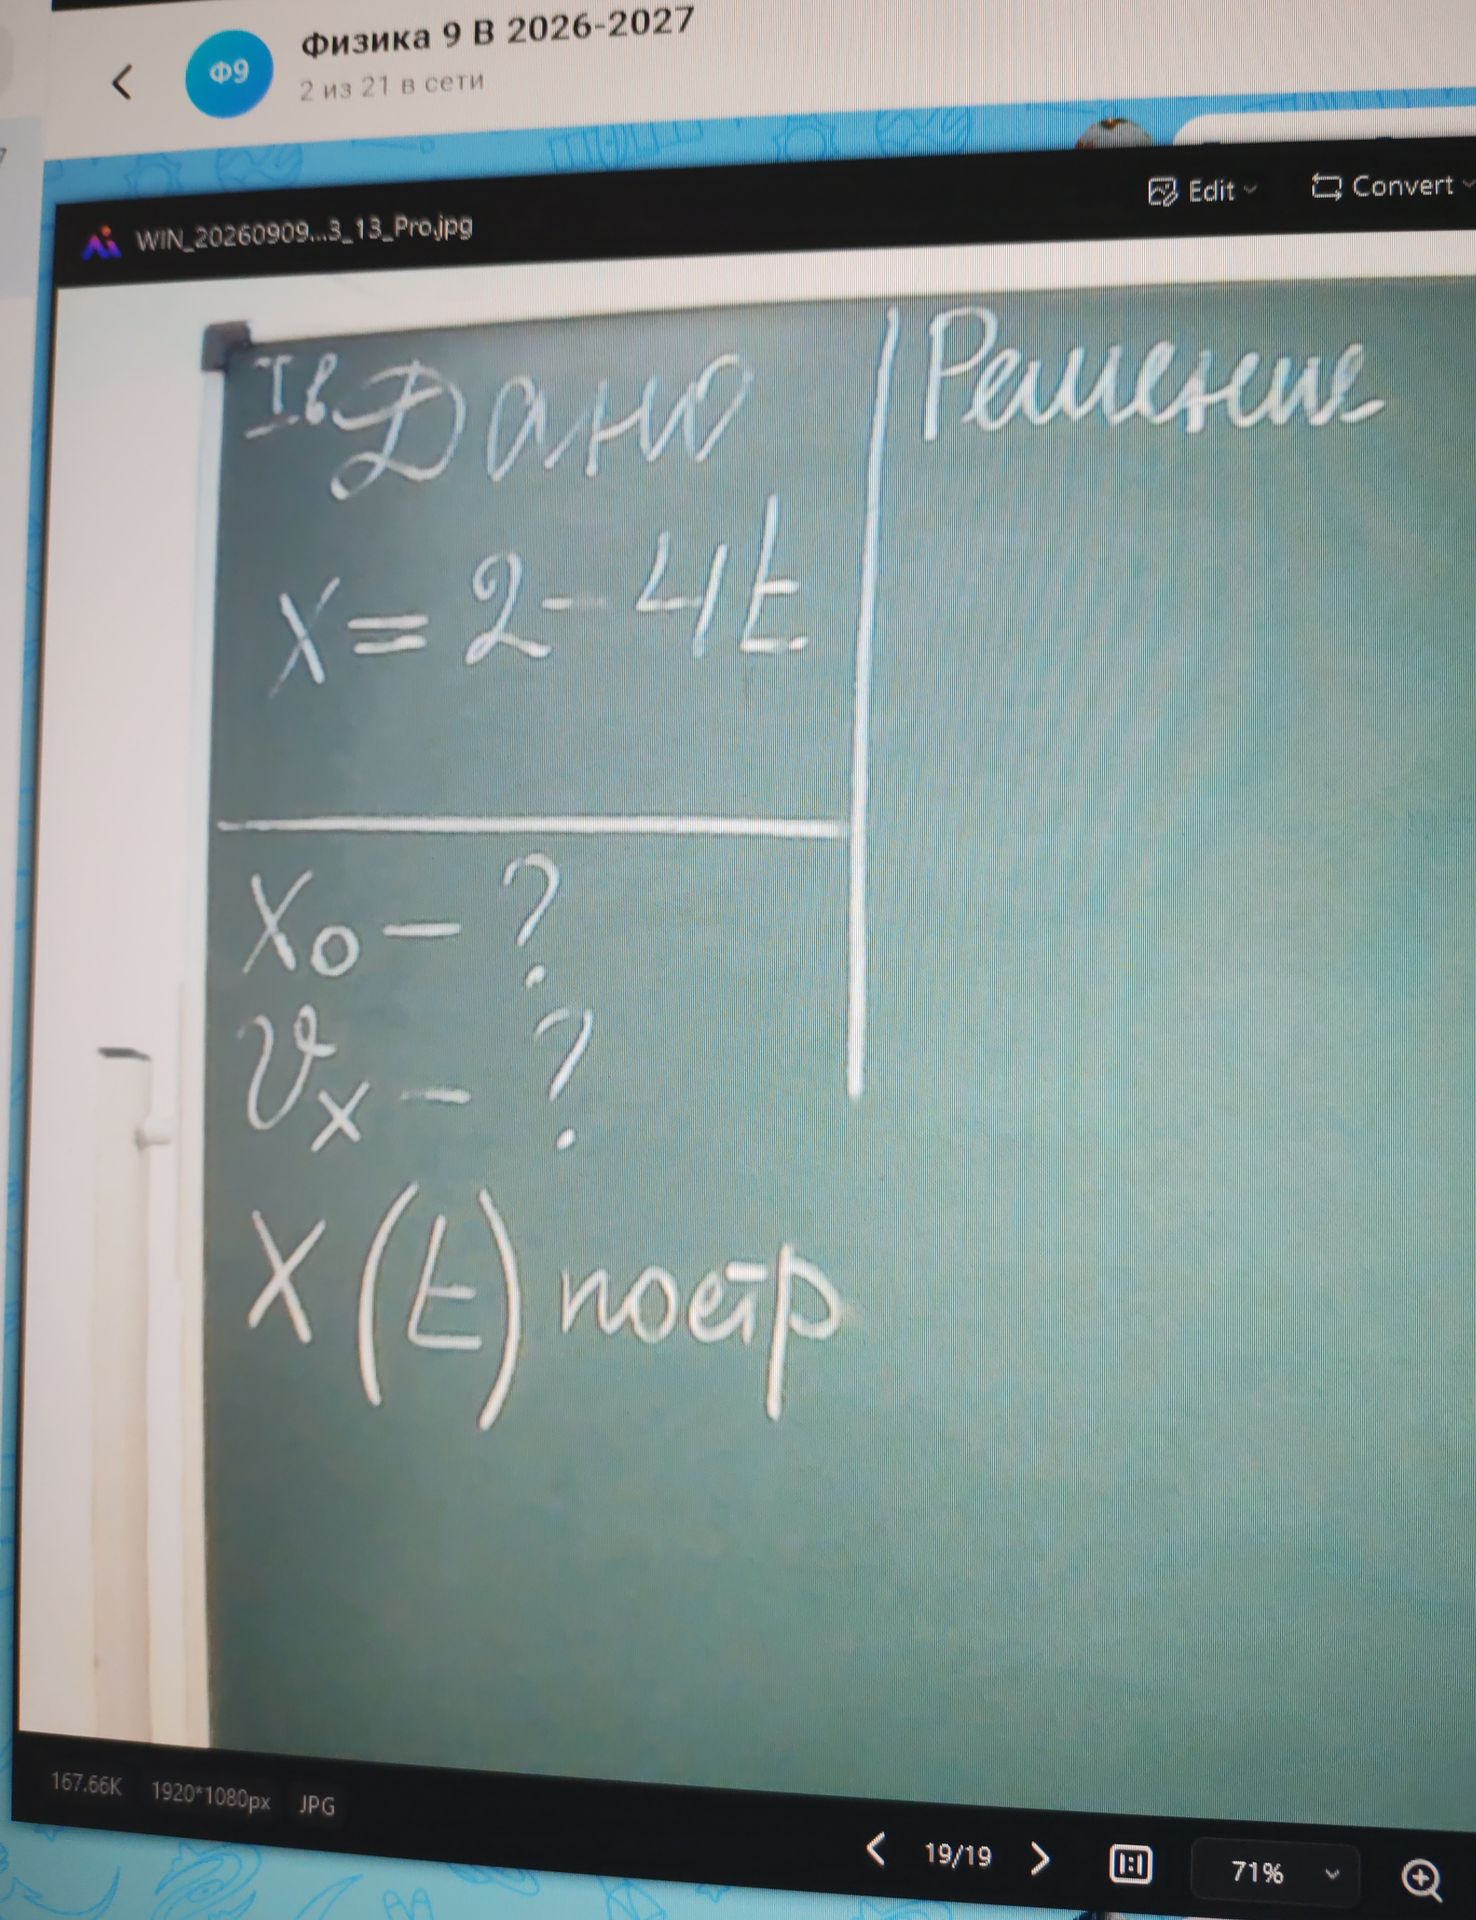 Физика 9 В 2026-2027
Ф9
2 из 21 в сети
7
Edit
Convert
WIN_20260909...3_13_Pro.jpg
Iв Дано
Решение
x = 2 - 4t
x₀ - ?
υₓ - ?
x(t) постр
167.66K 1920*1080px JPG
19/19
1:1
71%